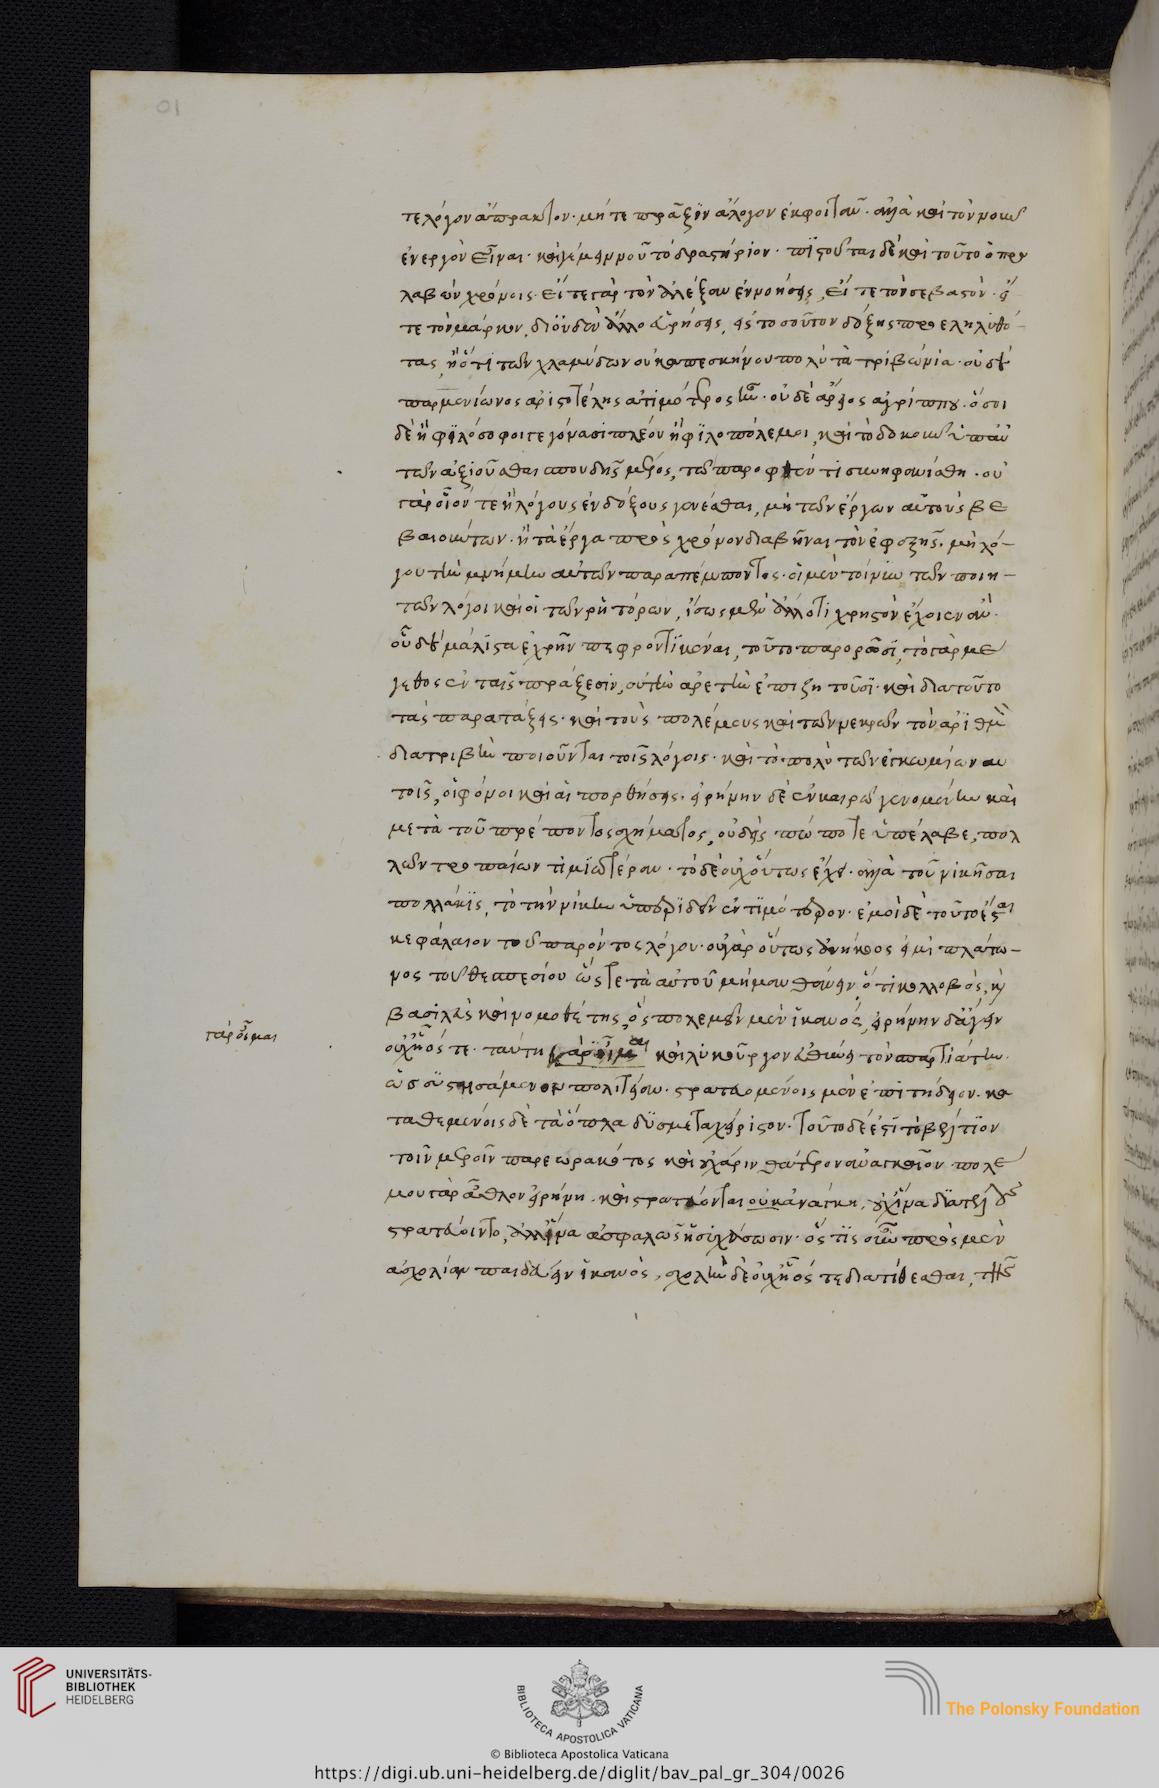 τε λόγον ἄπρακτον· μήτε πρᾶξιν ἄλογον ἐκφοιτᾶν· ἀλλὰ καὶ τὸν νοῦν
ἐνεργὸν εἶναι· καὶ γέμειν νοῦ τὸ δραστήριον· πιστοῦται δὲ καὶ τοῦτο ὁ προ
λαβὼν χρόνος· εἴτε γὰρ τὸν ἀλέξανδρον ἐννοήσεις, εἴτε τὸν σεβαστόν· εἴ
τε τὸν μάρκον, δι' οὐδὲν ἄλλο εὑρήσεις, εἰς τοσοῦτον δόξης προεληλυθό-
τας, ἢ ὅτι τῶν χλαμύδων οὐκ ἀπεσκήνου πολὺ τὰ τριβώνια· οὐδὲ
παρμενίωνος ἀριστοτέλης ἀτιμότερος ἦν· οὐδὲ ἄρειος ἀγρίππου· ὅσοι
δὲ ἢ φιλόσοφοι γεγόνασι πλέον ἢ φιλοπόλεμοι, καὶ τὸ δοκοῦν ὑπ' αὐ
τῶν ἀξιοῦσθαι σπουδῆς μέρος, τῷ παροφθέντι συνηφανίσθη· οὐ
γὰρ οἷόν τε ἢ λόγους ἐνδόξους γενέσθαι, μὴ τῶν ἔργων αὐτοὺς βε
βαιούντων· ἢ τὰ ἔργα πρὸς χρόνον διαβῆναι τὸν ἐφεξῆς· μὴ λό-
γου τὴν μνήμην αὐτῶν παραπέμποντος· οἱ μὲν τοίνυν τῶν ποιη-
τῶν λόγοι καὶ οἱ τῶν ῥητόρων, ἴσως μὲν ἄλλο τι χρηστὸν ἔχοιεν ἄν·
οὗ δὲ μάλιστα ἐχρῆν πεφροντικέναι, τοῦτο παρορῶσι, τὸ γὰρ με
γεθος ἐν ταῖς πράξεσιν, οὐ τὴν ἀρετὴν ἐπιζητοῦσι· καὶ διὰ τοῦτο
τὰς παρατάξεις· καὶ τοὺς πολέμους καὶ τῶν νεκρῶν τὸν ἀριθμὸν
διατριβὴν ποιοῦνται τοῖς λόγοις· καὶ τὸ πολὺ τῶν ἐγκωμίων αὐ
τοῖς, οἱ φόνοι καὶ αἱ πορθήσεις· εἰρήνην δὲ ἐν καιρῷ γενομένην καὶ
μετὰ τοῦ πρέποντος σχήματος, οὐδεὶς πώποτε ὑπέλαβε, πολ
λῶν τροπαίων τιμιωτέραν· τὸ δὲ οὐχ οὕτως ἔχει· ἀλλὰ τοῦ νικῆσαι
πολλάκις, τὸ τὴν νίκην ὑπεριδεῖν ἐντιμότερον· ἐμοὶ δὲ τοῦτο ἔσται
κεφάλαιον τοῦ παρόντος λόγου· οὐ γὰρ οὕτως ἀνήκοος εἰμὶ πλάτω-
νος τοῦ θεσπεσίου ὥστε τὰ αὐτοῦ μήπω μαθεῖν, ὅτι κολοβός,
βασιλεὺς καὶ νομοθέτης, ὃς πολεμεῖν μὲν ἱκανός, εἰρήνην δ' ἄγειν
γὰρ οἶμαι
οὐχ οἷός τε· ταύτῃ γὰρ οἶμαι καὶ λυκοῦργον εὐθύνει τὸν σπαρτιάτην·
ὡς συστησάμενον πολιτείαν· στρατευομένοις μὲν ἐπιτήδειον· κα
ταθεμένοις δὲ τὰ ὅπλα δυσμεταχείριστον· τοῦτο δέ ἐστι τὸ βέλτιον
τοῖν μεροῖν παρεωρακότος καὶ οὗ χάριν θάτερον ἀναγκαῖον πολέ
μου γὰρ ἆθλον εἰρήνη· καὶ στρατεύονται οὐκ ἀνάγκη, οὐχ ἵνα διατελοῖεν
στρατεύοιντο, ἀλλ' ἵνα ἀσφαλῶς ἡσυχάσωσιν· ὅστις οὖν πρὸς μὲν
ἀσχολίαν παιδεύειν ἱκανός, σχολὴν δὲ οὐχ οἷός τε διατίθεσθαι, τῆς
UNIVERSITÄTS-
BIBLIOTHEK
HEIDELBERG
BIBLIOTECA APOSTOLICA VATICANA
The Polonsky Foundation
© Biblioteca Apostolica Vaticana
https://digi.ub.uni-heidelberg.de/diglit/bav_pal_gr_304/0026